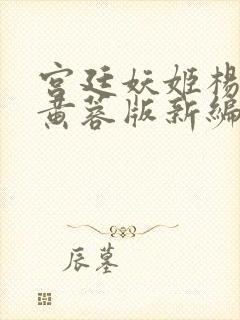 宫廷妖姬杨
黄蓉版新编
辰墓